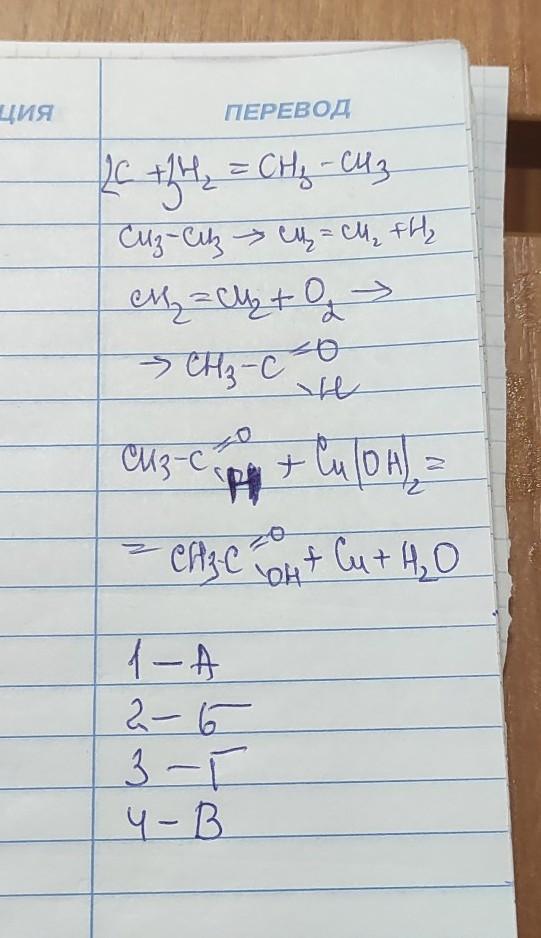 ЦИЯ ПЕРЕВОД
2C + 3H₂ = CH₃-CH₃
CH₃-CH₃ → CH₂=CH₂ + H₂
CH₂=CH₂ + O₂ →
→ CH₃-C =O \H
CH₃-C =O \H + Cu(OH)₂ =
= CH₃-C =O \OH + Cu + H₂O
1 – А
2 – Б
3 – Г
4 – В